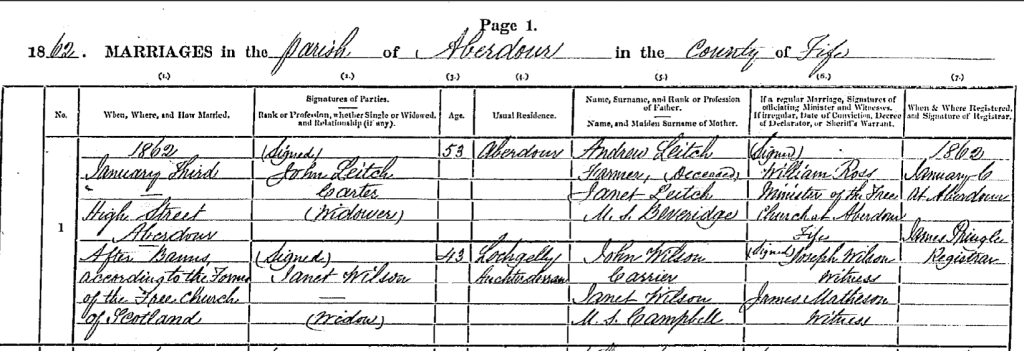 Page 1.
1862. MARRIAGES in the Parish of Aberdour in the County of Fife
(1.) (2.) (3.) (4.) (5.) (6.) (7.)
No.
When, Where, and How Married.
Signatures of Parties.
Rank or Profession, whether Single or Widowed, and Relationship (if any).
Age.
Usual Residence.
Name, Surname, and Rank or Profession of Father.
Name, and Maiden Surname of Mother.
If a regular Marriage, Signatures of officiating Minister and Witnesses.
If irregular, Date of Conviction, Decree of Declarator, or Sheriff's Warrant.
When & Where Registered, and Signature of Registrar.
1
1862
January Third
"—
High Street
Aberdour
After Banns
according to the Forms
of the Free Church
of Scotland
(Signed)
John Leitch
Carter
(Widower)
(Signed)
Janet Wilson
—
(Widow)
53
43
Aberdour
Lochgelly
Auchterderran
Andrew Leitch
Farmer, (Deceased)
Janet Leitch
M.S. Beveridge
John Wilson
Carrier
Janet Wilson
M.S. Campbell
(Signed)
William Ross
Minister of the Free
Church at Aberdour
Fife
(Signed) Joseph Wilson
Witness
James Matheson
Witness
1862
January 6
At Aberdour
James Pringle
Registrar